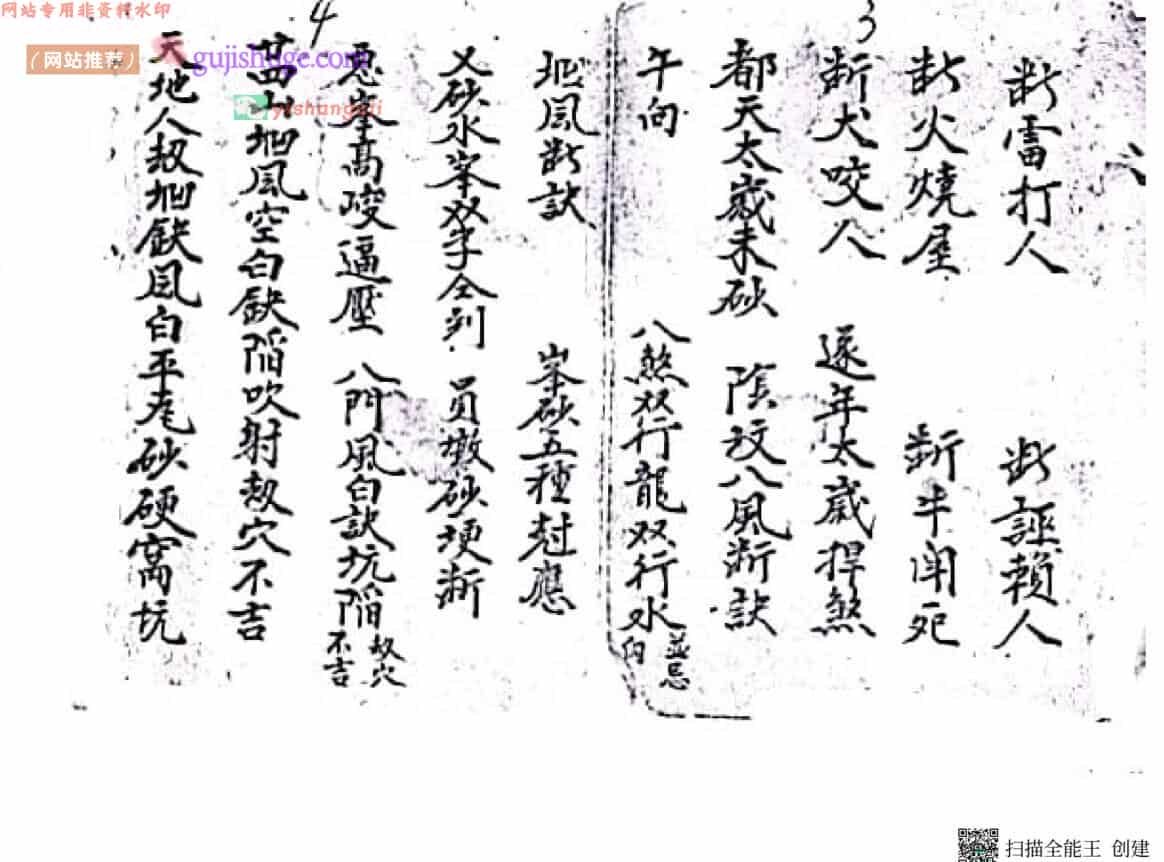 网站专用非资料水印
(网站推荐)
gujishuge.com
yishunguji
3
4
断雷打人　断誣賴人
断火燒屋　断牛闲死
断犬咬人　逐年太歲捍煞
都天太歲未砂　陰坟八風断訣
午向　八煞双行龍双行水並忌向
地風断訣　峯砂五種封應
乂砂水峯双手全到　員墩砂埂断
恶峯高峻逼壓　八門風白訣坑陷故穴不吉
廿四山地風空白缺陷吹射故穴不吉
天地人劫地缺風白平尾砂硬窩坑
扫描全能王 创建